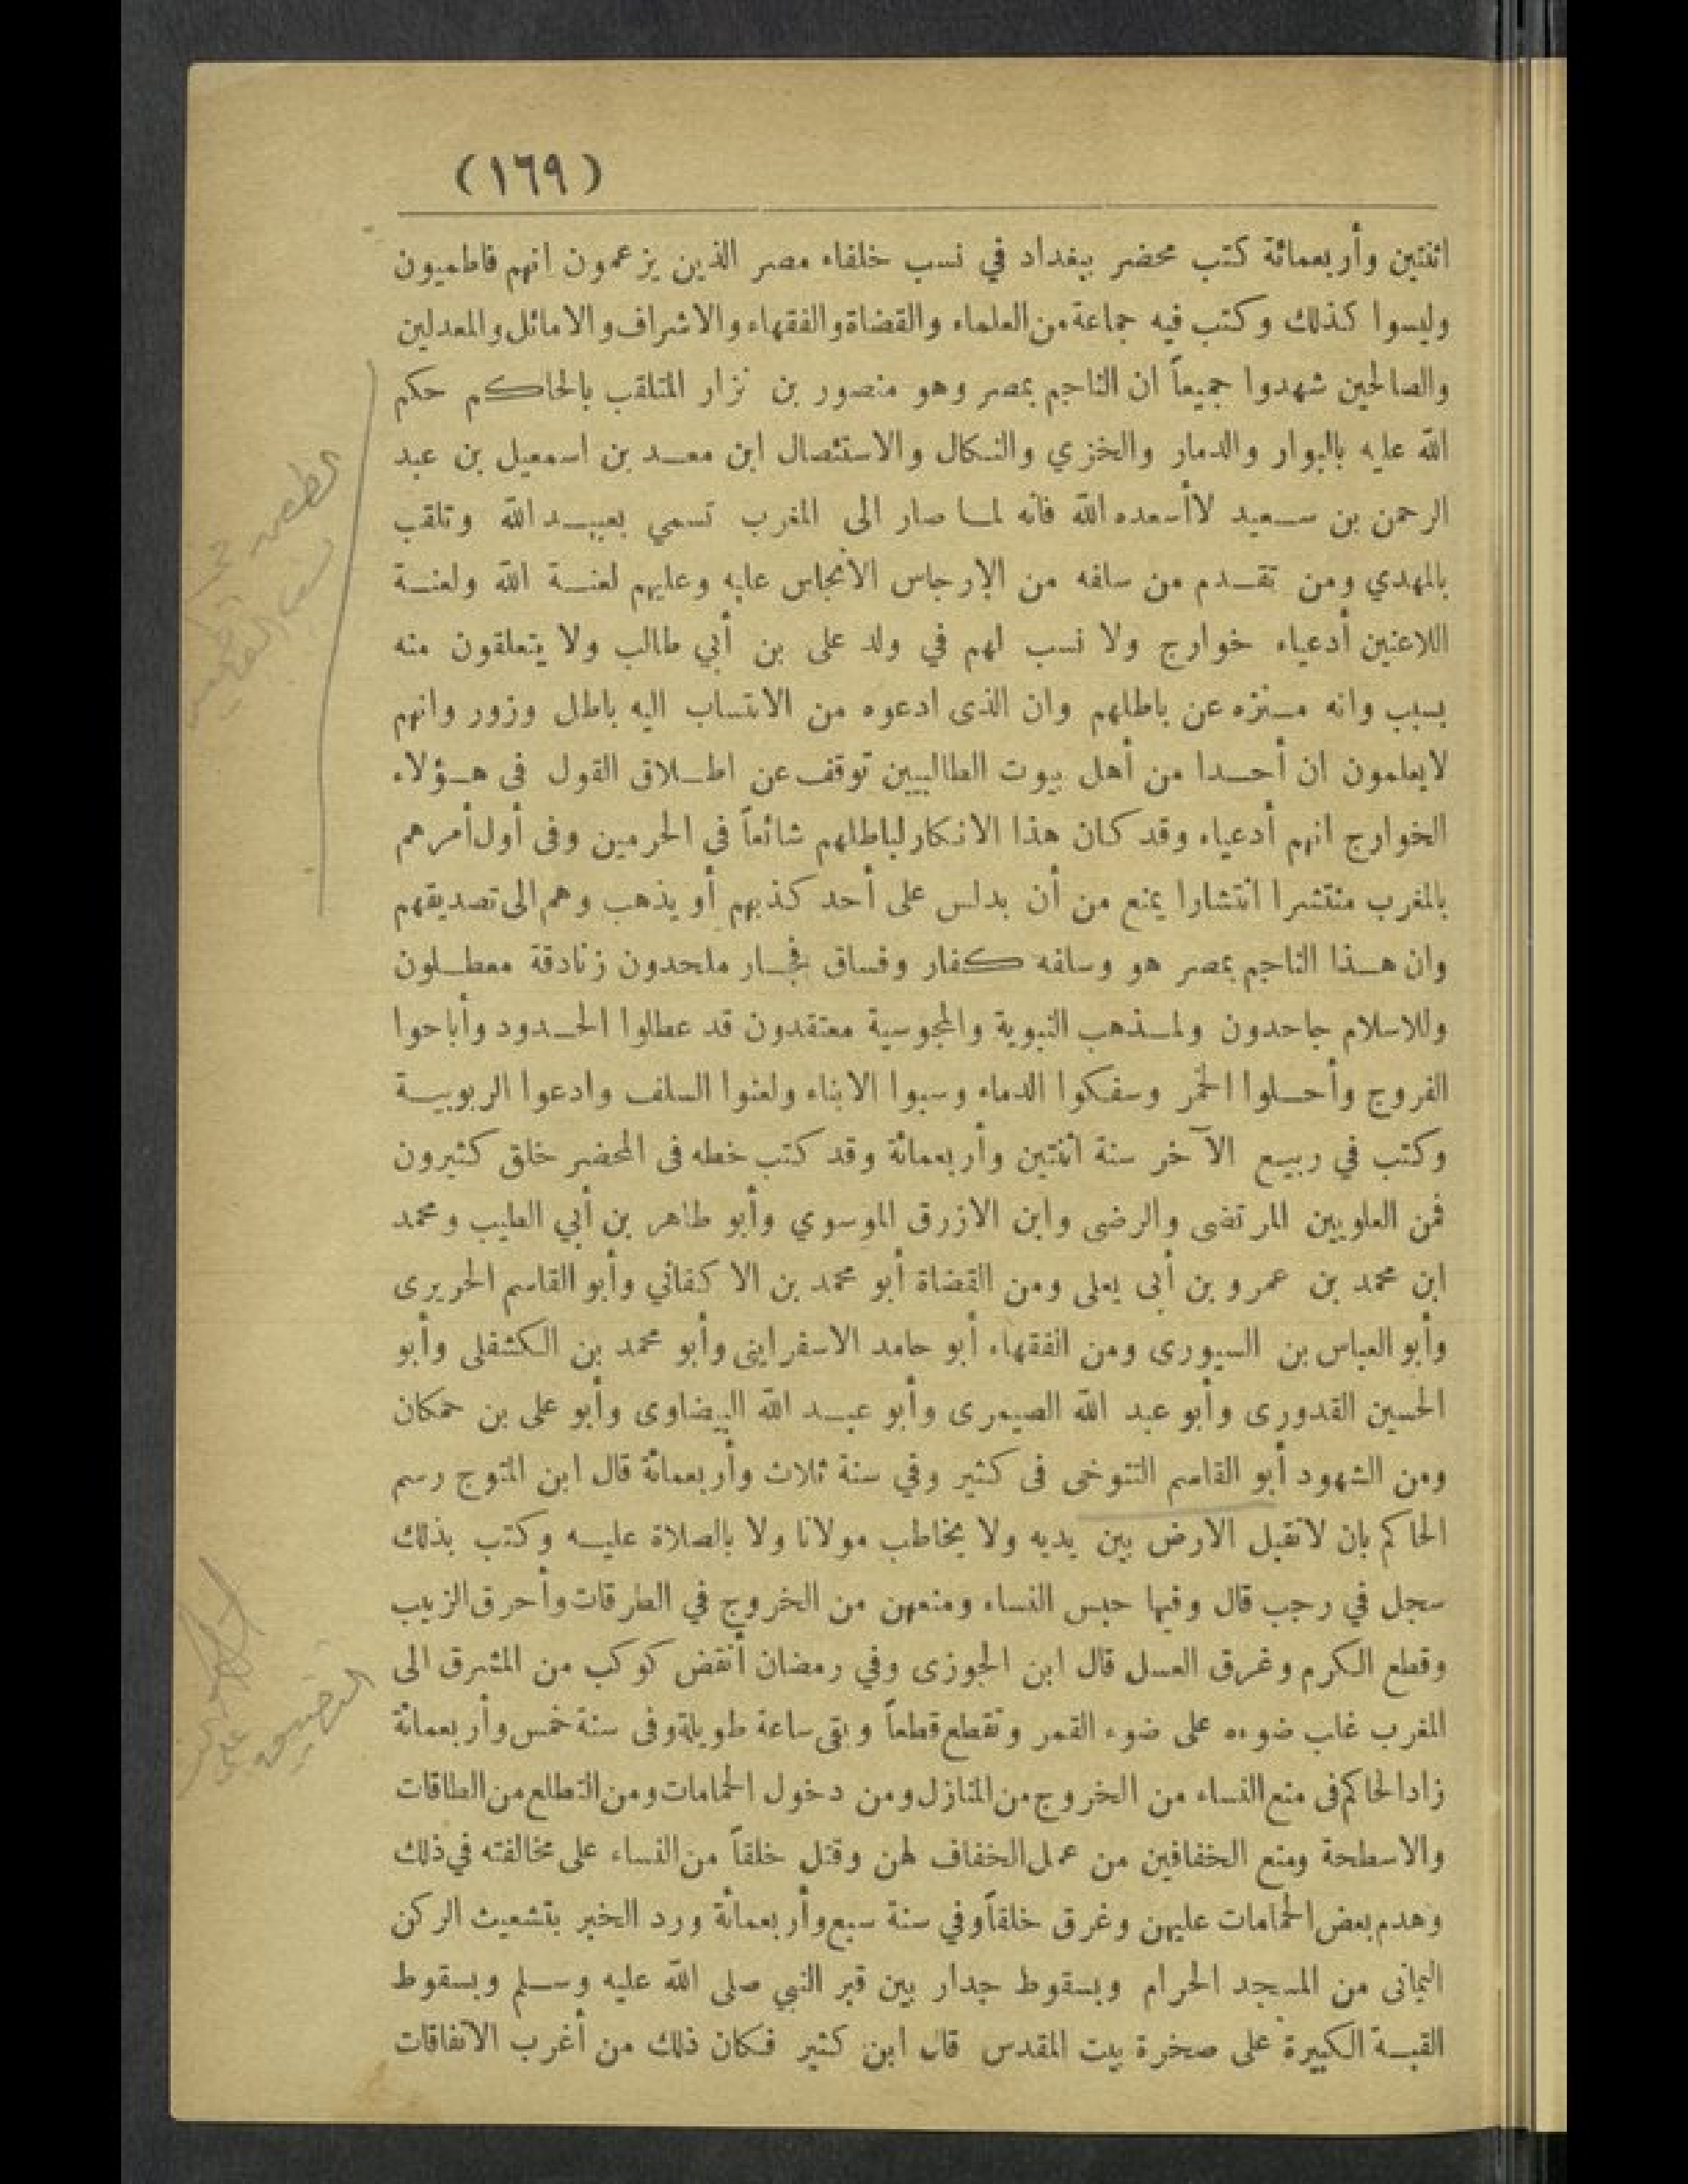 (١٦٩)
اثنتين وأربعمائة كتب محضر ببغداد في نسب خلفاء مصر الذين يزعمون انهم فاطميون
وليسوا كذلك وكتب فيه جماعة من العلماء والقضاة والفقهاء والاشراف والاماثل والمعدلين
والصالحين شهدوا جميعاً ان الناجم بمصر وهو منصور بن نزار المتلقب بالحاكم حكم
الله عليه بالبوار والدمار والخزي والنكال والاستئصال ابن معد بن اسمعيل بن عبد
الرحمن بن سعيد لا أسعده الله فانه لما صار الى المغرب تسمي بعبيد الله وتلقب
بالمهدي ومن تقدم من سلفه من الارجاس الأنجاس عليه وعليهم لعنة الله ولعنة
اللاعنين أدعياء خوارج ولا نسب لهم في ولد على بن أبي طالب ولا يتعلقون منه
بسبب وانه منزه عن باطلهم وان الذى ادعوه من الانتساب اليه باطل وزور وانهم
لا يعلمون ان أحدا من أهل بيوت الطالبيين توقف عن اطلاق القول فى هؤلاء
الخوارج انهم أدعياء وقد كان هذا الانكار لباطلهم شائعاً في الحرمين وفى أول أمرهم
بالمغرب منتشرا انتشارا يمنع من أن يدلس على أحد كذبهم أو يذهب وهم الى تصديقهم
وان هذا الناجم بمصر هو وسلفه كفار وفساق فجار ملحدون زنادقة معطلون
وللاسلام جاحدون ولمذهب الثنوية والمجوسية معتقدون قد عطلوا الحدود وأباحوا
الفروج وأحلوا الخمر وسفكوا الدماء وسبوا الابناء ولعنوا السلف وادعوا الربوبية
وكتب في ربيع الآخر سنة اثنتين وأربعمائة وقد كتب خطه فى المحضر خلق كثيرون
فمن العلويين المرتضى والرضى وابن الازرق الموسوي وأبو طاهر بن أبي الطيب ومحمد
ابن محمد بن عمرو بن أبى يعلى ومن القضاة أبو محمد بن الاكفاني وأبو القاسم الحريرى
وأبو العباس بن السيورى ومن الفقهاء أبو حامد الاسفراينى وأبو محمد بن الكشفلى وأبو
الحسين القدورى وأبو عبد الله الصيمرى وأبو عبد الله البيضاوى وأبو على بن حمكان
ومن الشهود أبو القاسم التنوخى فى كثير وفي سنة ثلاث وأربعمائة قال ابن المتوج رسم
الحاكم بان لا تقبل الارض بين يديه ولا يخاطب مولانا ولا بالصلاة عليه وكتب بذلك
سجل في رجب قال وفيها حبس النساء ومنعهن من الخروج في الطرقات وأحرق الزبيب
وقطع الكرم وغرق العسل قال ابن الجوزى وفي رمضان أنقض كوكب من المشرق الى
المغرب غلب ضوءه على ضوء القمر وتقطع قطعاً وبقى ساعة طويلة وفى سنة خمس وأربعمائة
زاد الحاكم فى منع النساء من الخروج من المنازل ومن دخول الحمامات ومن التطلع من الطاقات
والاسطحة ومنع الخفافين من عمل الخفاف لهن وقتل خلقاً من النساء على مخالفته في ذلك
وهدم بعض الحمامات عليهن وغرق خلقاً وفي سنة سبع وأربعمائة ورد الخبر بتشعيث الركن
اليمانى من المسجد الحرام وبسقوط جدار بين قبر النبي صلى الله عليه وسلم وبسقوط
القبة الكبيرة على صخرة بيت المقدس قال ابن كثير فكان ذلك من أغرب الاتفاقات